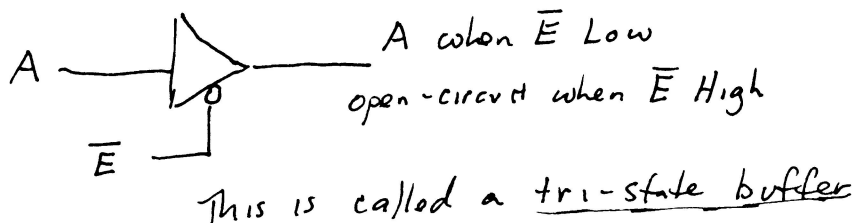 A
A when E̅ Low
open-circuit when E̅ High
E̅
This is called a tri-state buffer